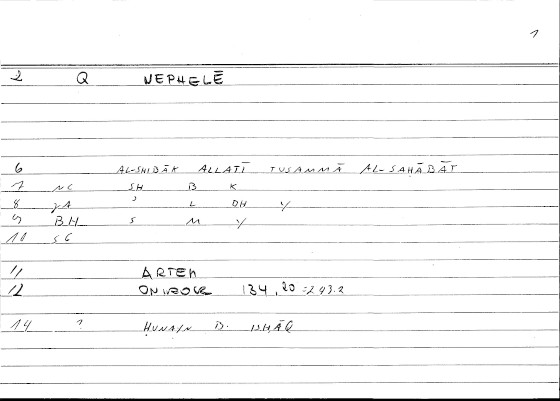 1
2 Q NEPHELĒ
6 AL-SHIBĀK ALLATĪ TUSAMMĀ AL-SAḤĀBĀT
7 NC SH B K
8 ʾ L DH Y
9 BH S M Y
10 SG
11 ARTEM
12 ONIROCR 134,20 = 243.2
14 ? ḤUNAIN B. ISḤĀQ